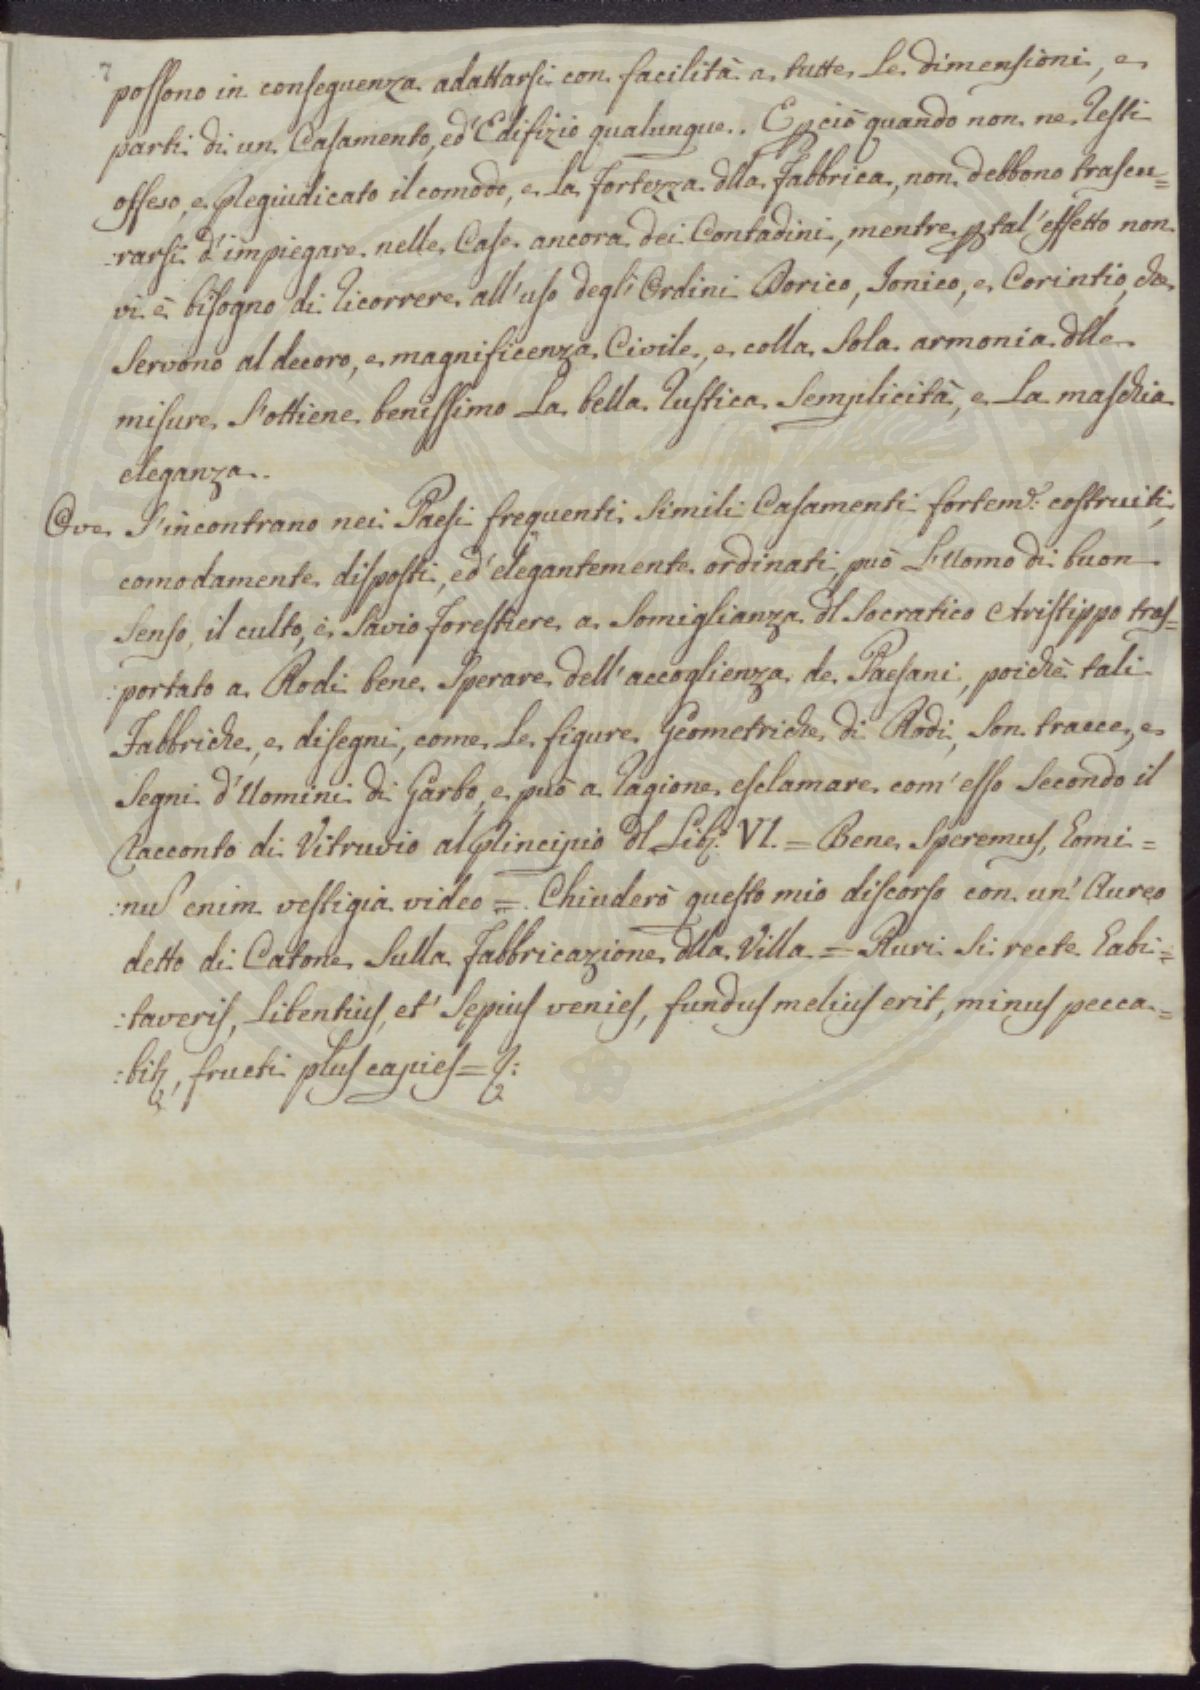 7
possono in conseguenza adattarsi con facilità a tutte le dimensioni, e
parti di un Casamento, ed' Edifizio qualunque. E pciò quando non ne resti
offeso, e pregiudicato il comodo, e la fortezza dlla Fabbrica, non debbono trascu=
:rarsi d'impiegare nelle Case ancora dei Contadini, mentre p tal'effetto non
vi è bisogno di ricorrere all'uso degl'Ordini Dorico, Jonico, e Corintio, che
servono al decoro, e magnificenza Civile, e colla sola armonia dlle
misure s'ottiene benissimo la bella rustica semplicità, e la maschia
eleganza.
Ove s'incontrano nei Paesi frequenti simili Casamenti fortem.e costruiti,
comodamente disposti, ed' elegantemente ordinati, può l'Uomo di buon
senso, il culto, e savio forestiere a somiglianza dl Socratico Aristippo tras=
:portato a Rodi bene sperare dell'accoglienza de Paesani, poichè tali
Fabbriche, e disegni, come le figure Geometriche di Rodi, son tracce, e
segni d'Uomini di Garbo, e può a ragione esclamare com'esso secondo il
racconto di Vitruvio al principio dl Lib. VI. = Bene speremus, homi=
:nus enim vestigia video =. Chiuderò questo mio discorso con un' Aureo
detto di Catone sulla fabbricazione dlla Villa = Ruri si recte habi=
:taveris, libentius, et' sepius venies, fundus melius erit, minus pecca=
:bit, fructi plus capies =